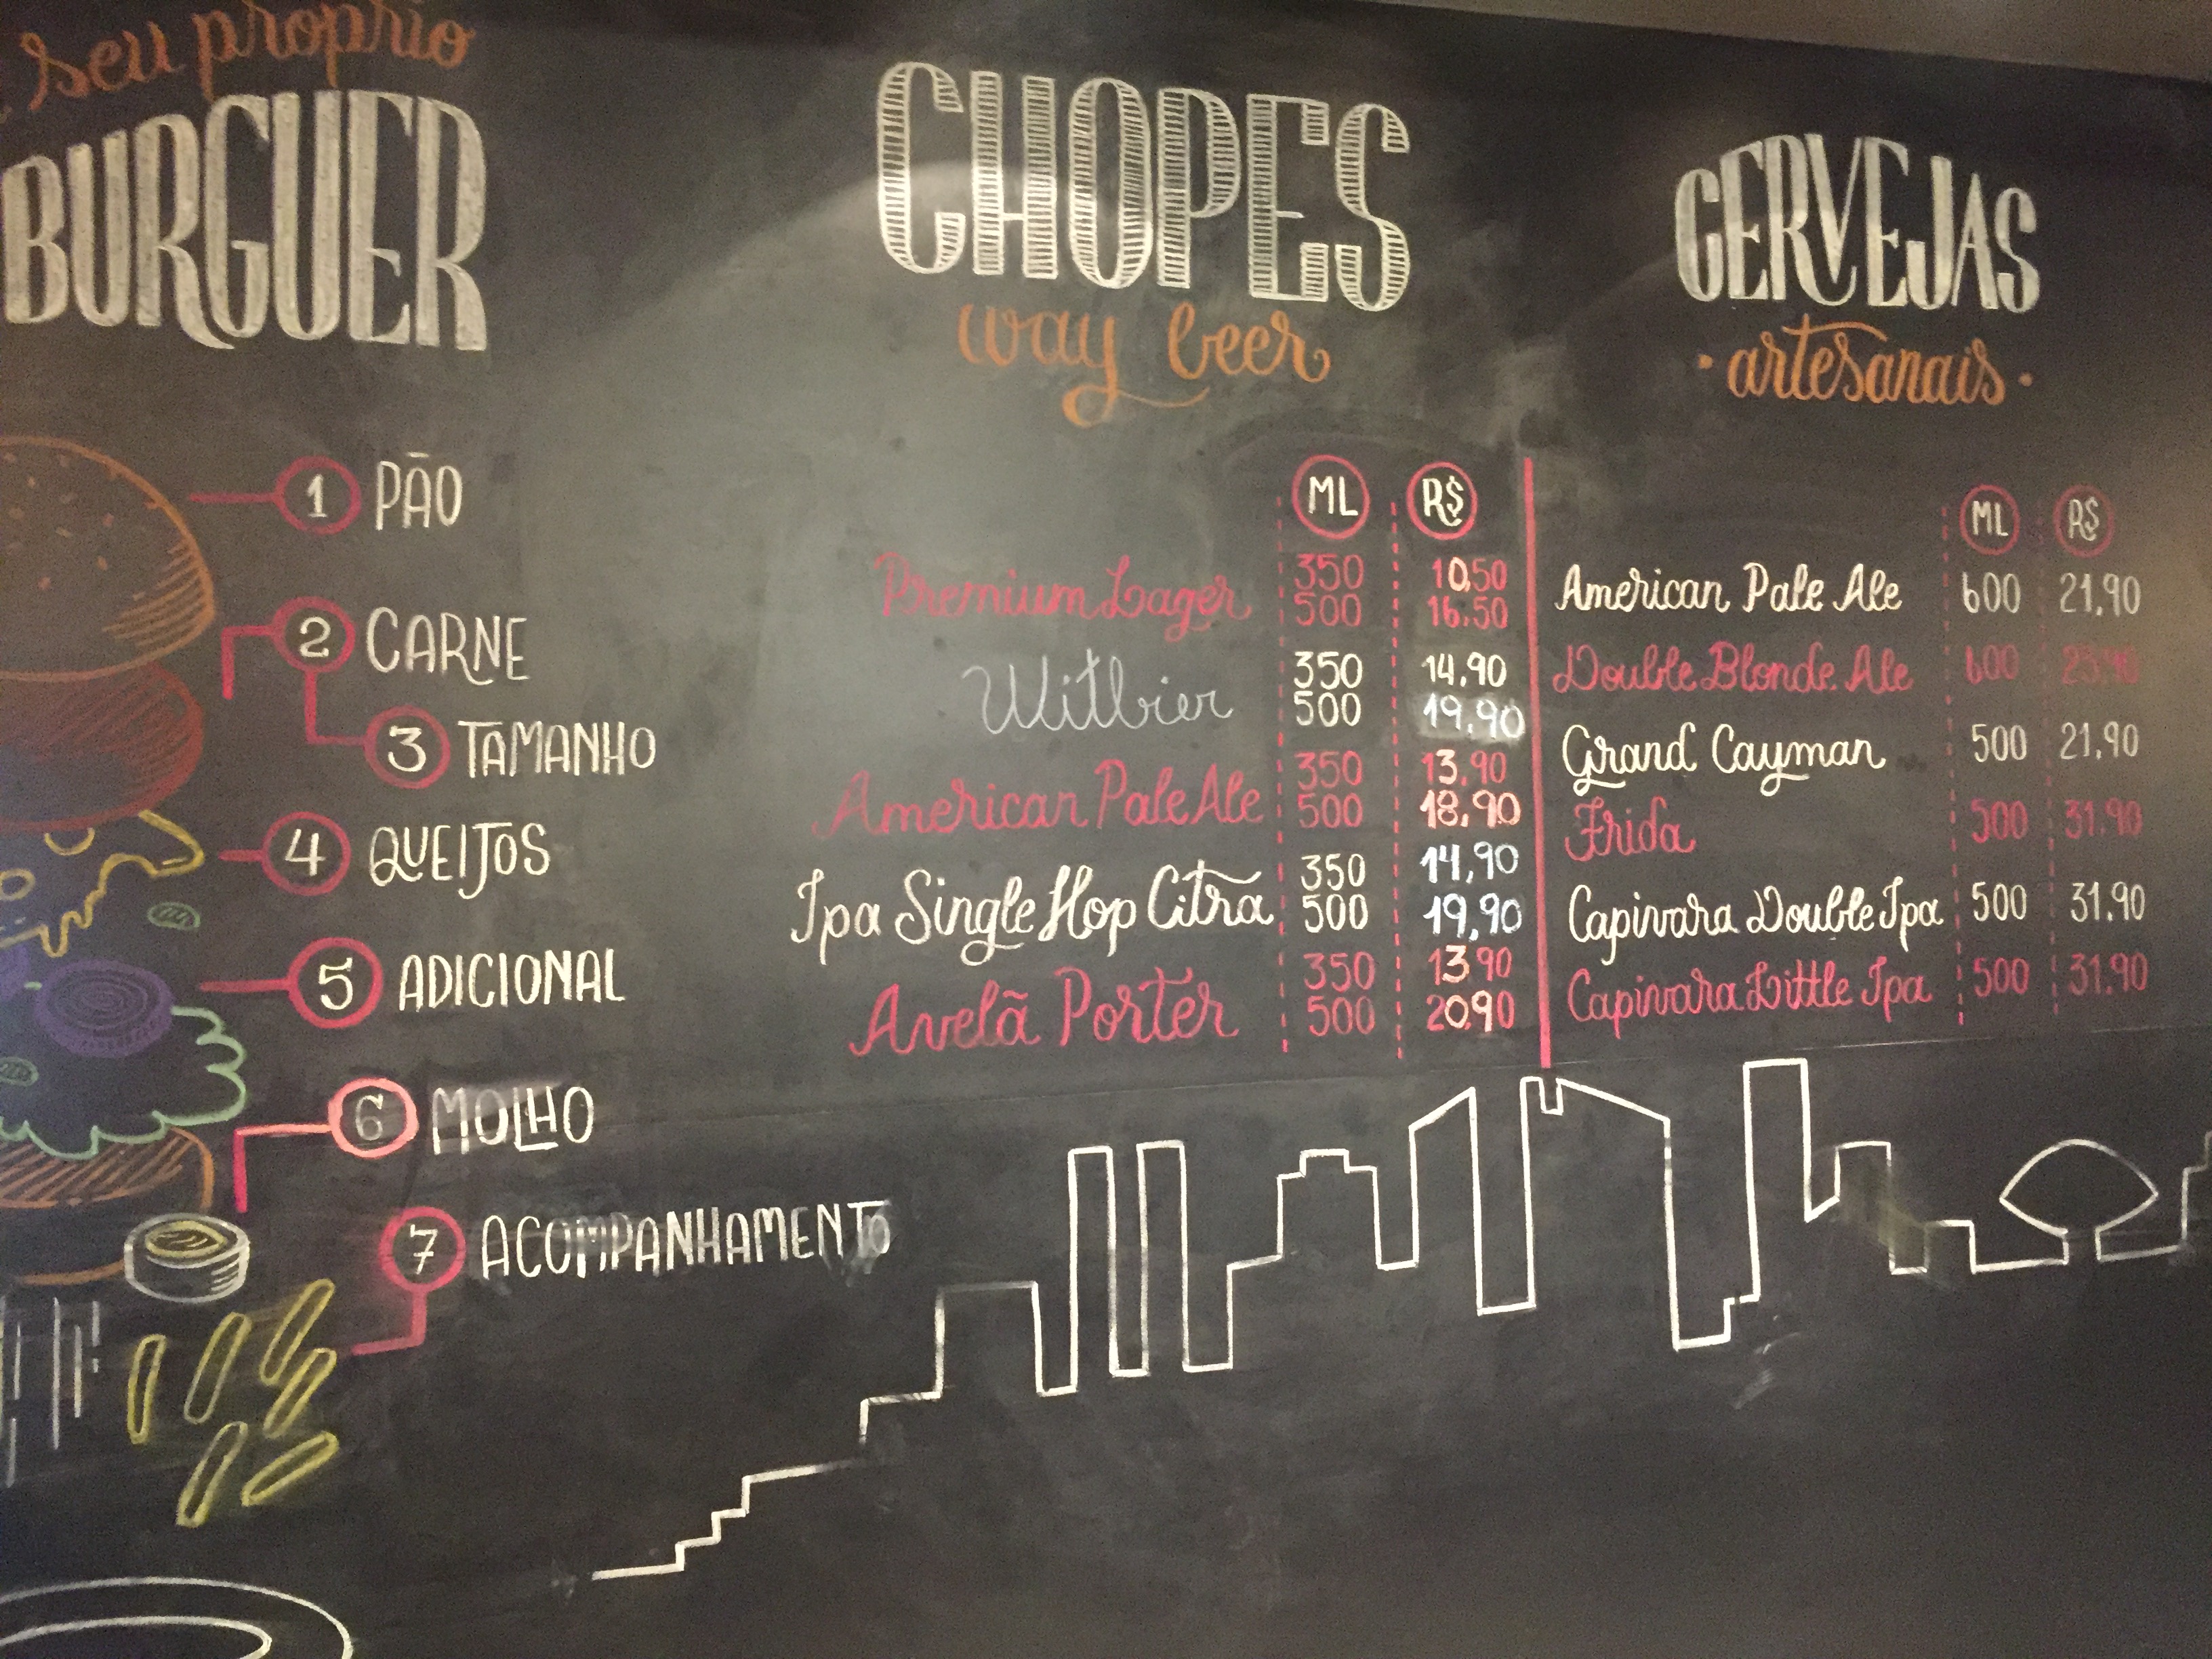 seu proprio
BURGUER
1 PÃO
2 CARNE
3 TAMANHO
4 QUEIJOS
5 ADICIONAL
6 MOLHO
7 ACOMPANHAMENTO
CHOPES
way beer
ML R$
Premium Lager 350 10,50
500 16,50
Witbier 350 14,90
500 19,90
American Pale Ale 350 13,90
500 18,90
Ipa Single Hop Citra 350 14,90
500 19,90
Avelã Porter 350 13,90
500 20,90
CERVEJAS
• artesanais •
ML R$
American Pale Ale 600 21,90
Double Blonde Ale 600
Grand Cayman 500 21,90
Frida 500 31,90
Capivara Double Ipa 500 31,90
Capivara Little Ipa 500 31,90